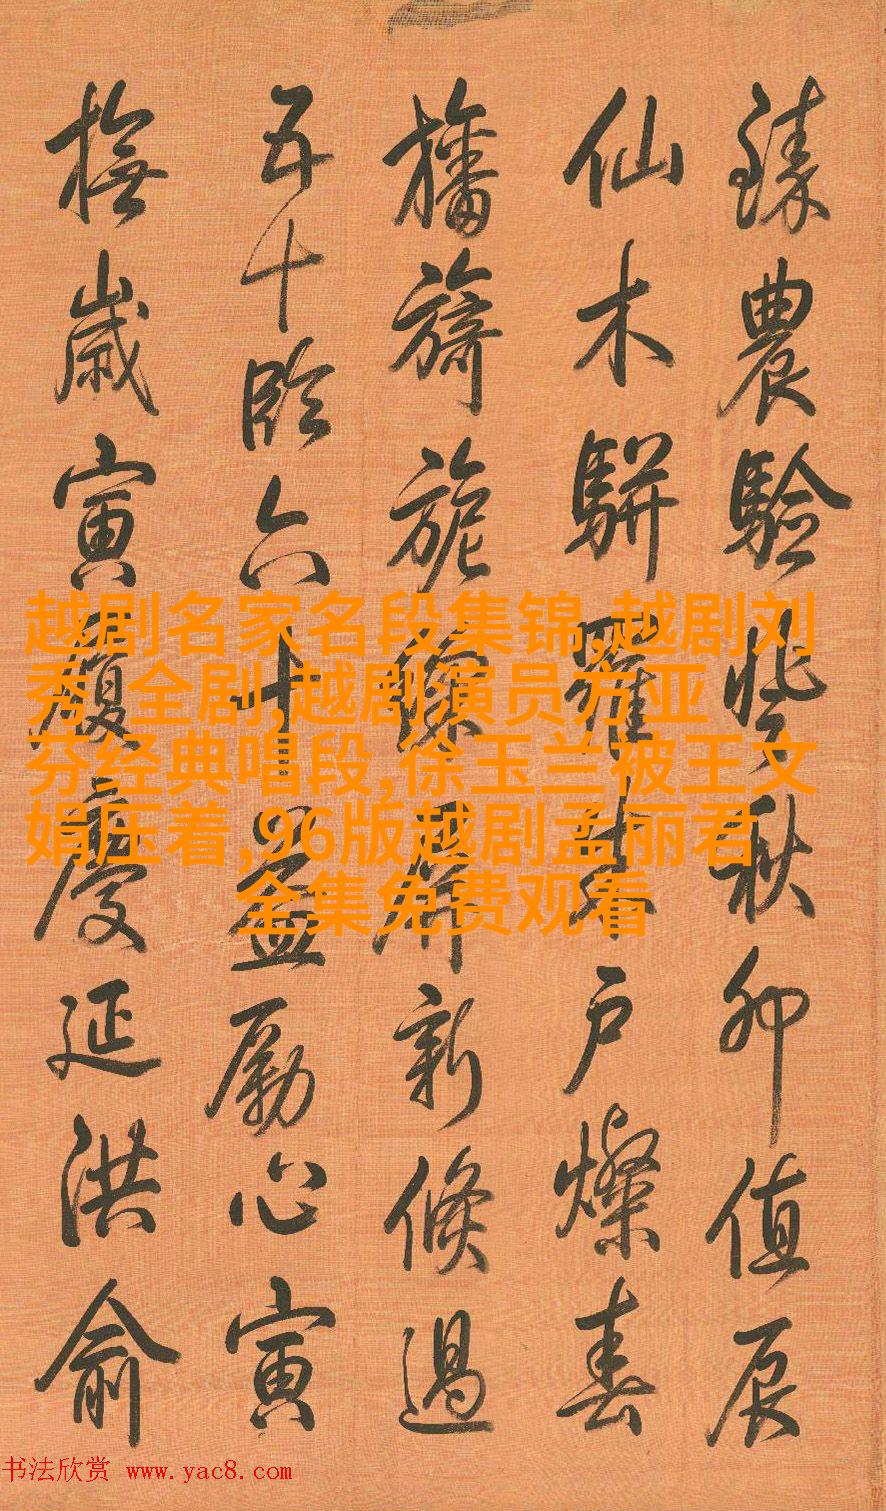 臻農驗登秋卯值辰
仙木駢羅戶燦春
旛旖旎屏新倏過
五十臨六十益勵心寅
撫歲寅履慶延洪俞
越剧名家名段集锦,越剧刘
秀 全剧,越剧 演员方亚
芬经典唱段,徐玉兰被王文
娟压着,96版越剧孟丽君
全集免费观看
书法欣赏 www.yac8.com